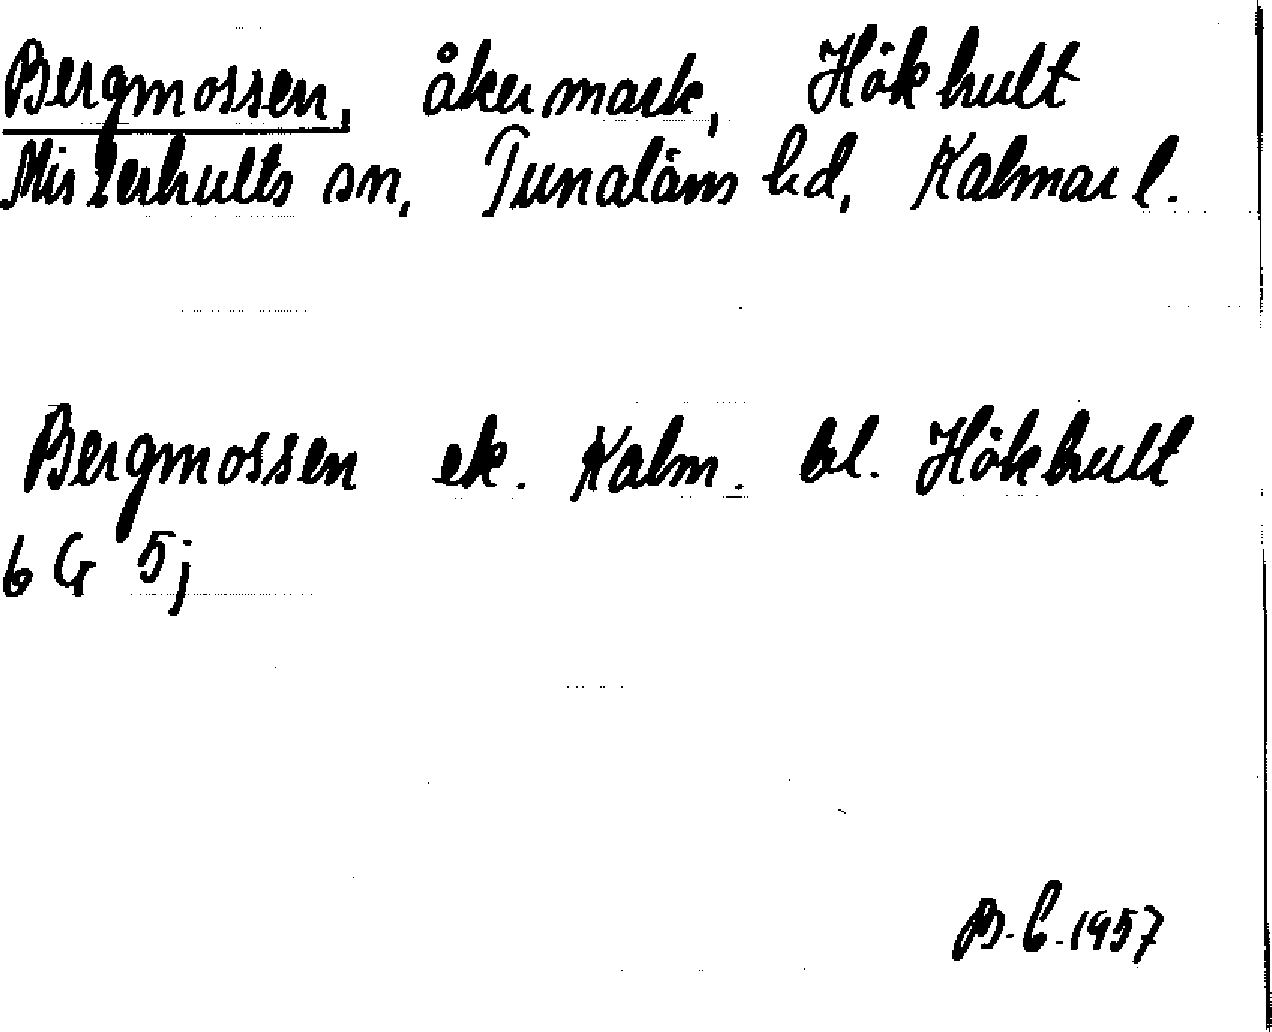 Bergmossen, åkermark, Hökhult
Misterhults sn, Tunaläns hd, Kalmar l.
Bergmossen ek. Kalm. bl. Hökhult
6 G 5j
B. G. 1957